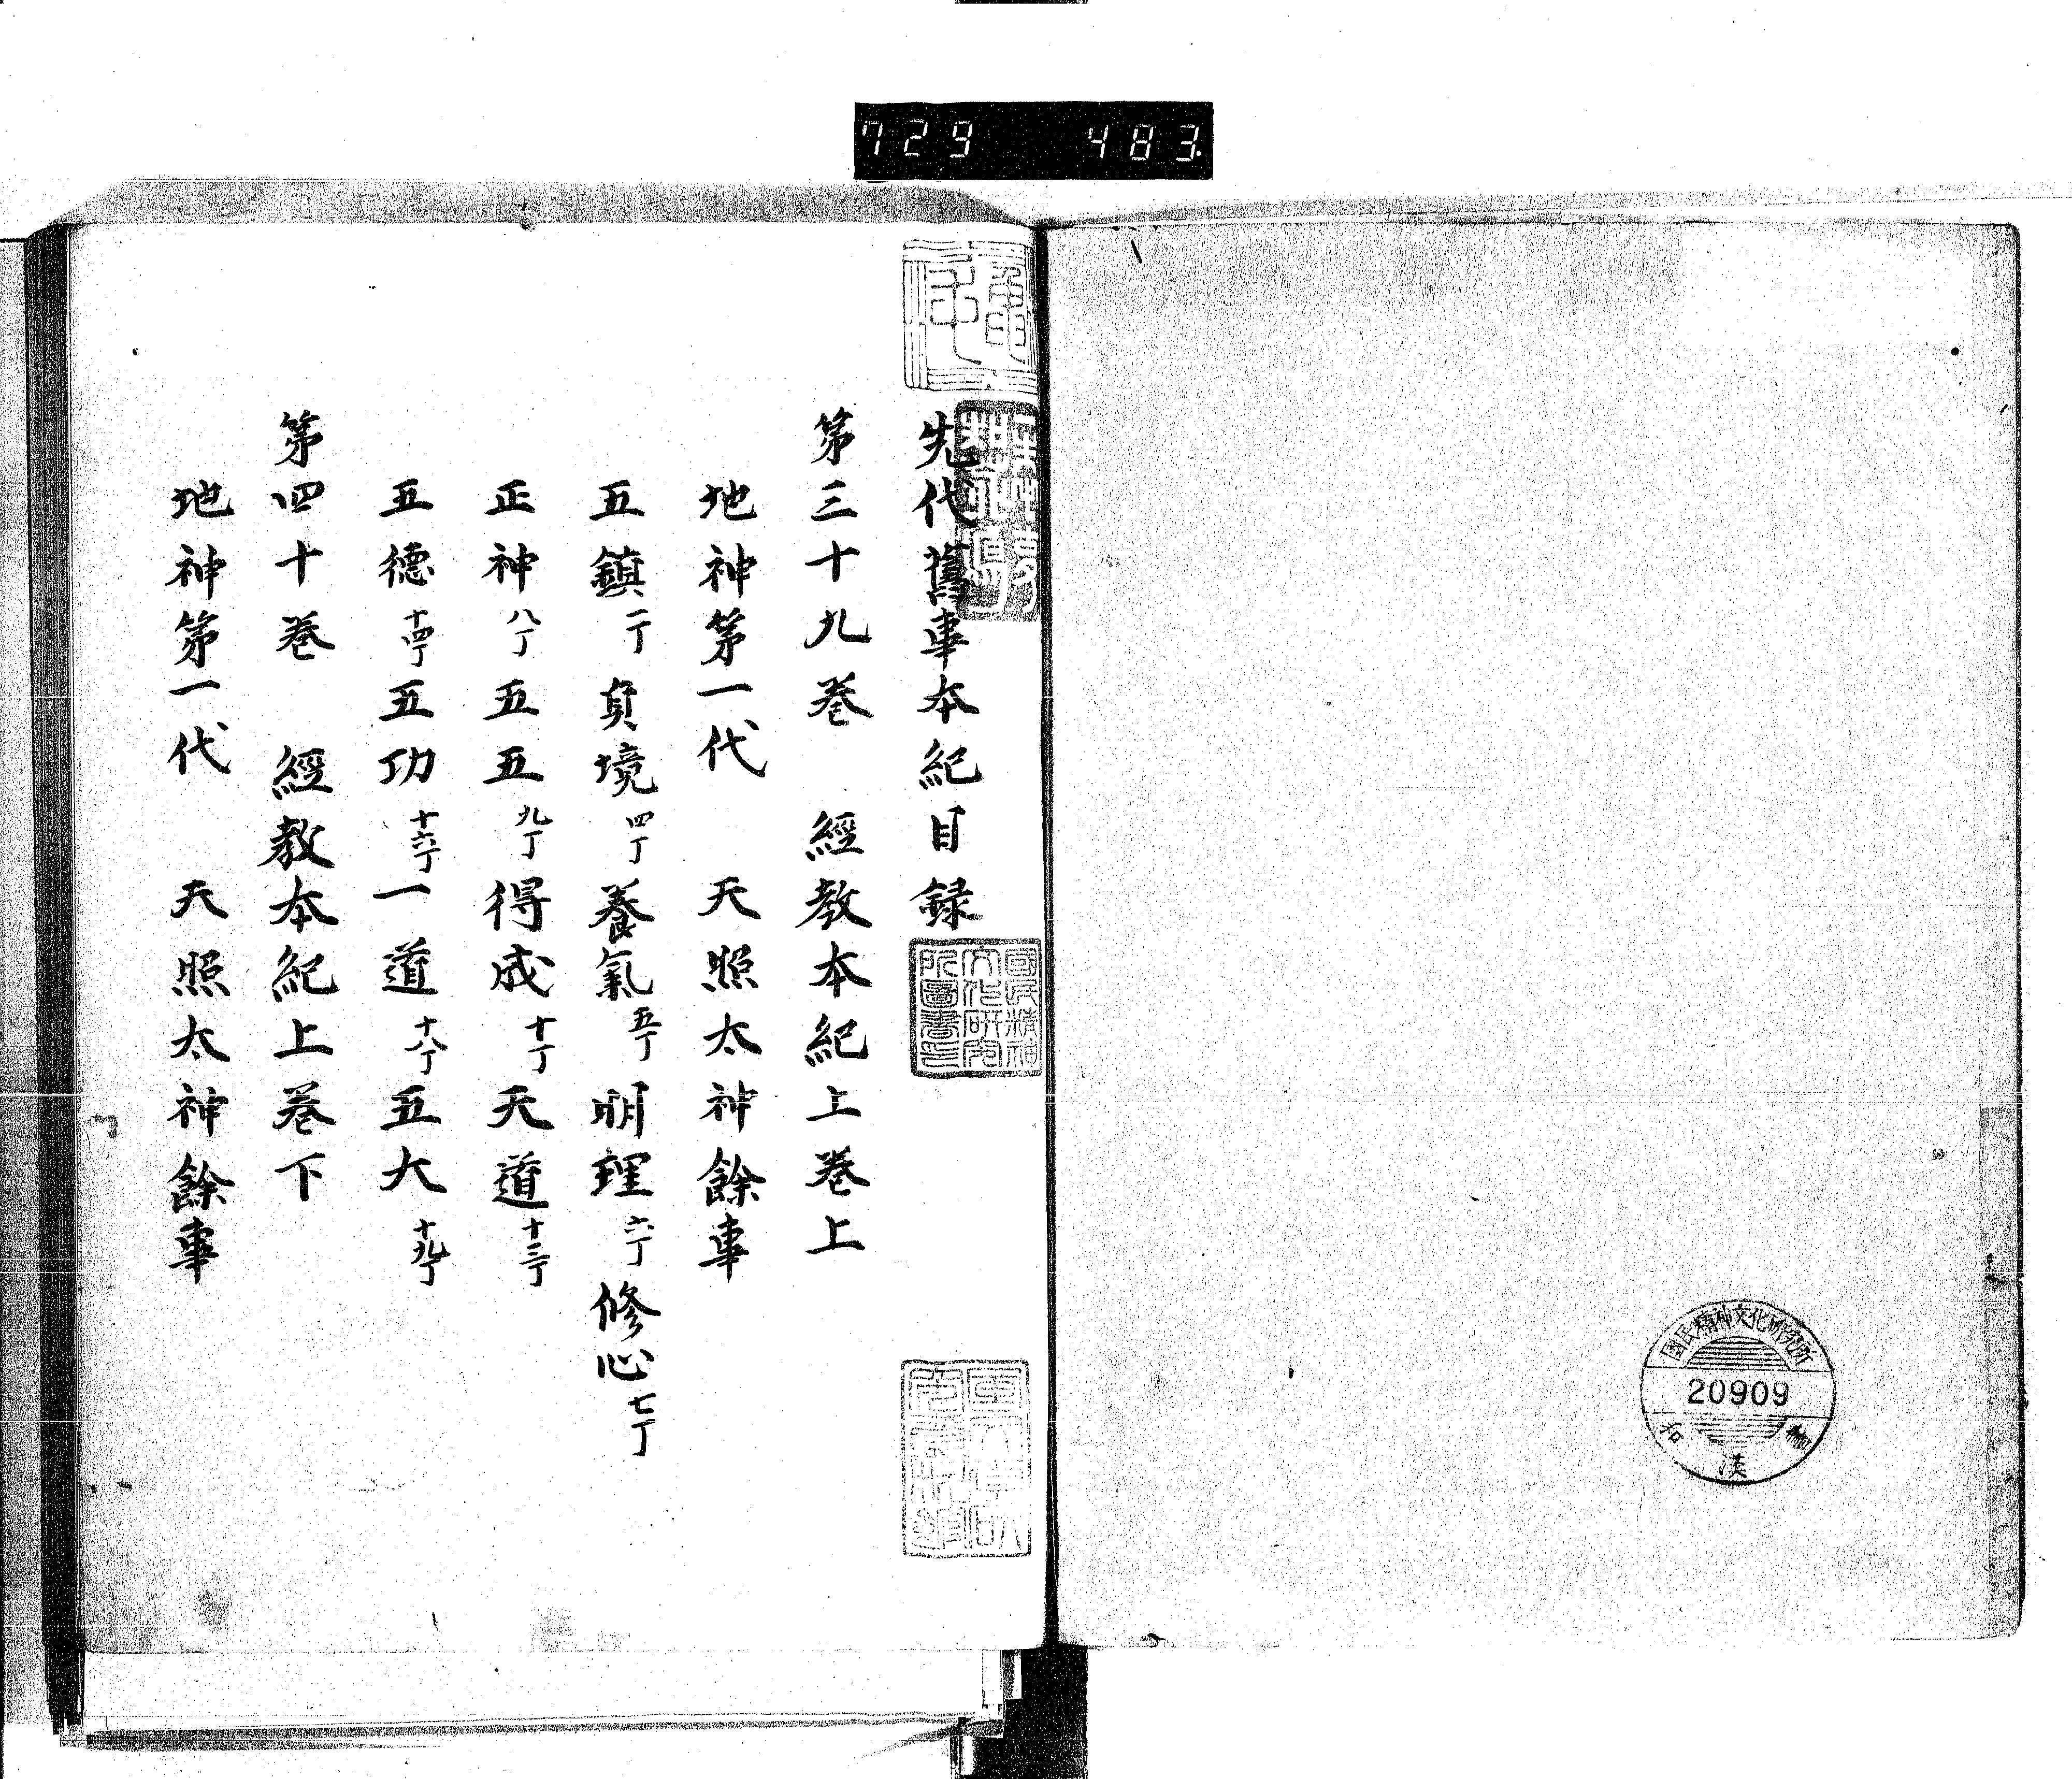 729 483
國民精神文化研究所
20909
漢
先代舊事本紀目録
國民精神
文化研究
所圖書印
第三十九巻 經教本紀上巻上
地神第一代 天照太神餘事
五鎮 一丁 眞境 四丁 養氣 五丁 明理 六丁 修心 七丁
正神 八丁 五五 九丁 得成 十丁 天道 十三丁
五德 十四丁 五功 十六丁 一道 十八丁 五大 十九丁
第四十巻 經教本紀上巻下
地神第一代 天照太神餘事